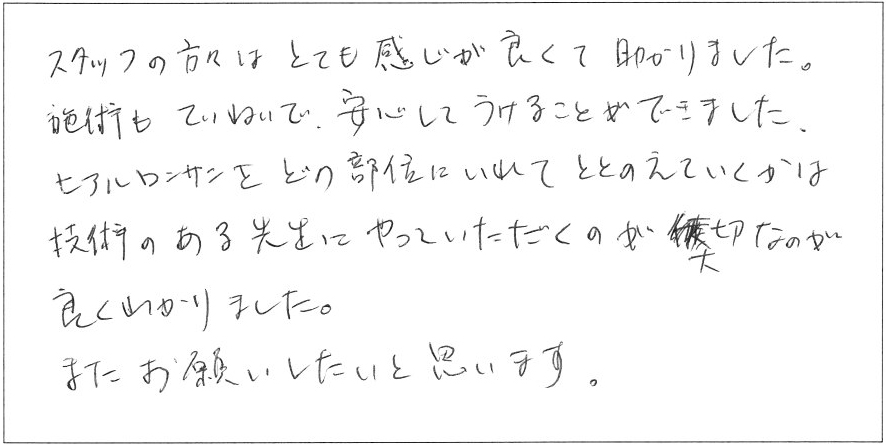 スタッフの方々はとても感じが良くて助かりました。
施術もていねいで、安心してうけることができました、
ヒアルロンサンをどの部位にいれてととのえていくかは
技術のある先生にやっていただくのが大切なのが
良くわかりました。
またお願いしたいと思います。